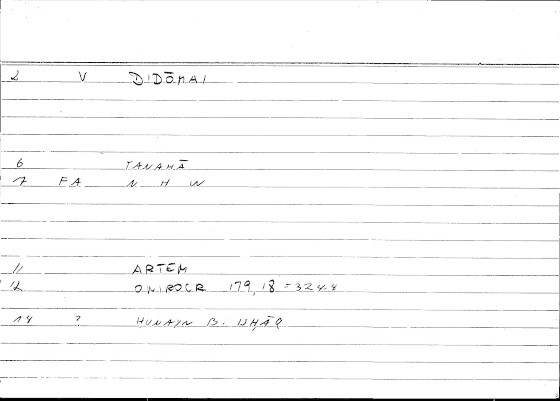 2 V DIDŌMAI
6 TANAHĀ
7 FA N H W
11 ARTEM
12 ONIROCR 179, 18 = 324.4
14 ? HUNAYN B. ISḤĀQ